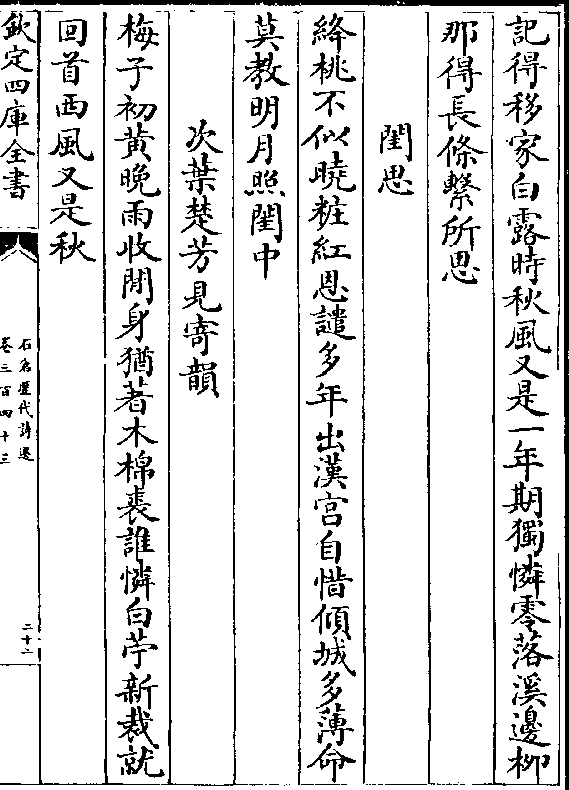 記得移家白露時秋風又是一年期獨憐零落溪邊柳
那得長條繫所思
閨思
絳桃不似曉粧紅恩譴多年出漢宮自惜傾城多薄命
莫教明月照閨中
次葉楚芳見寄韻
梅子初黄晚雨收閒身猶著木棉裘誰憐白苧新裁就
回首西風又是秋
欽定四庫全書
石倉歷代詩選
卷三百四十三
二十二